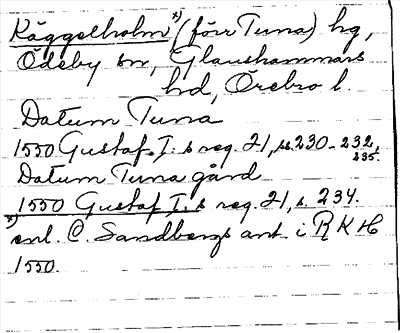 Käggelholm *) (förr Tuna) hg,
Ödeby sn, Glanshammars
hd, Örebro l.
Datum Tuna
1550 Gustaf I:s reg. 21, ss. 230-232,
235.
Datum Tuna gård
1550 Gustaf I:s reg. 21, s. 234.
*) enl. C. Sandbergs ant. i R K H
1550.